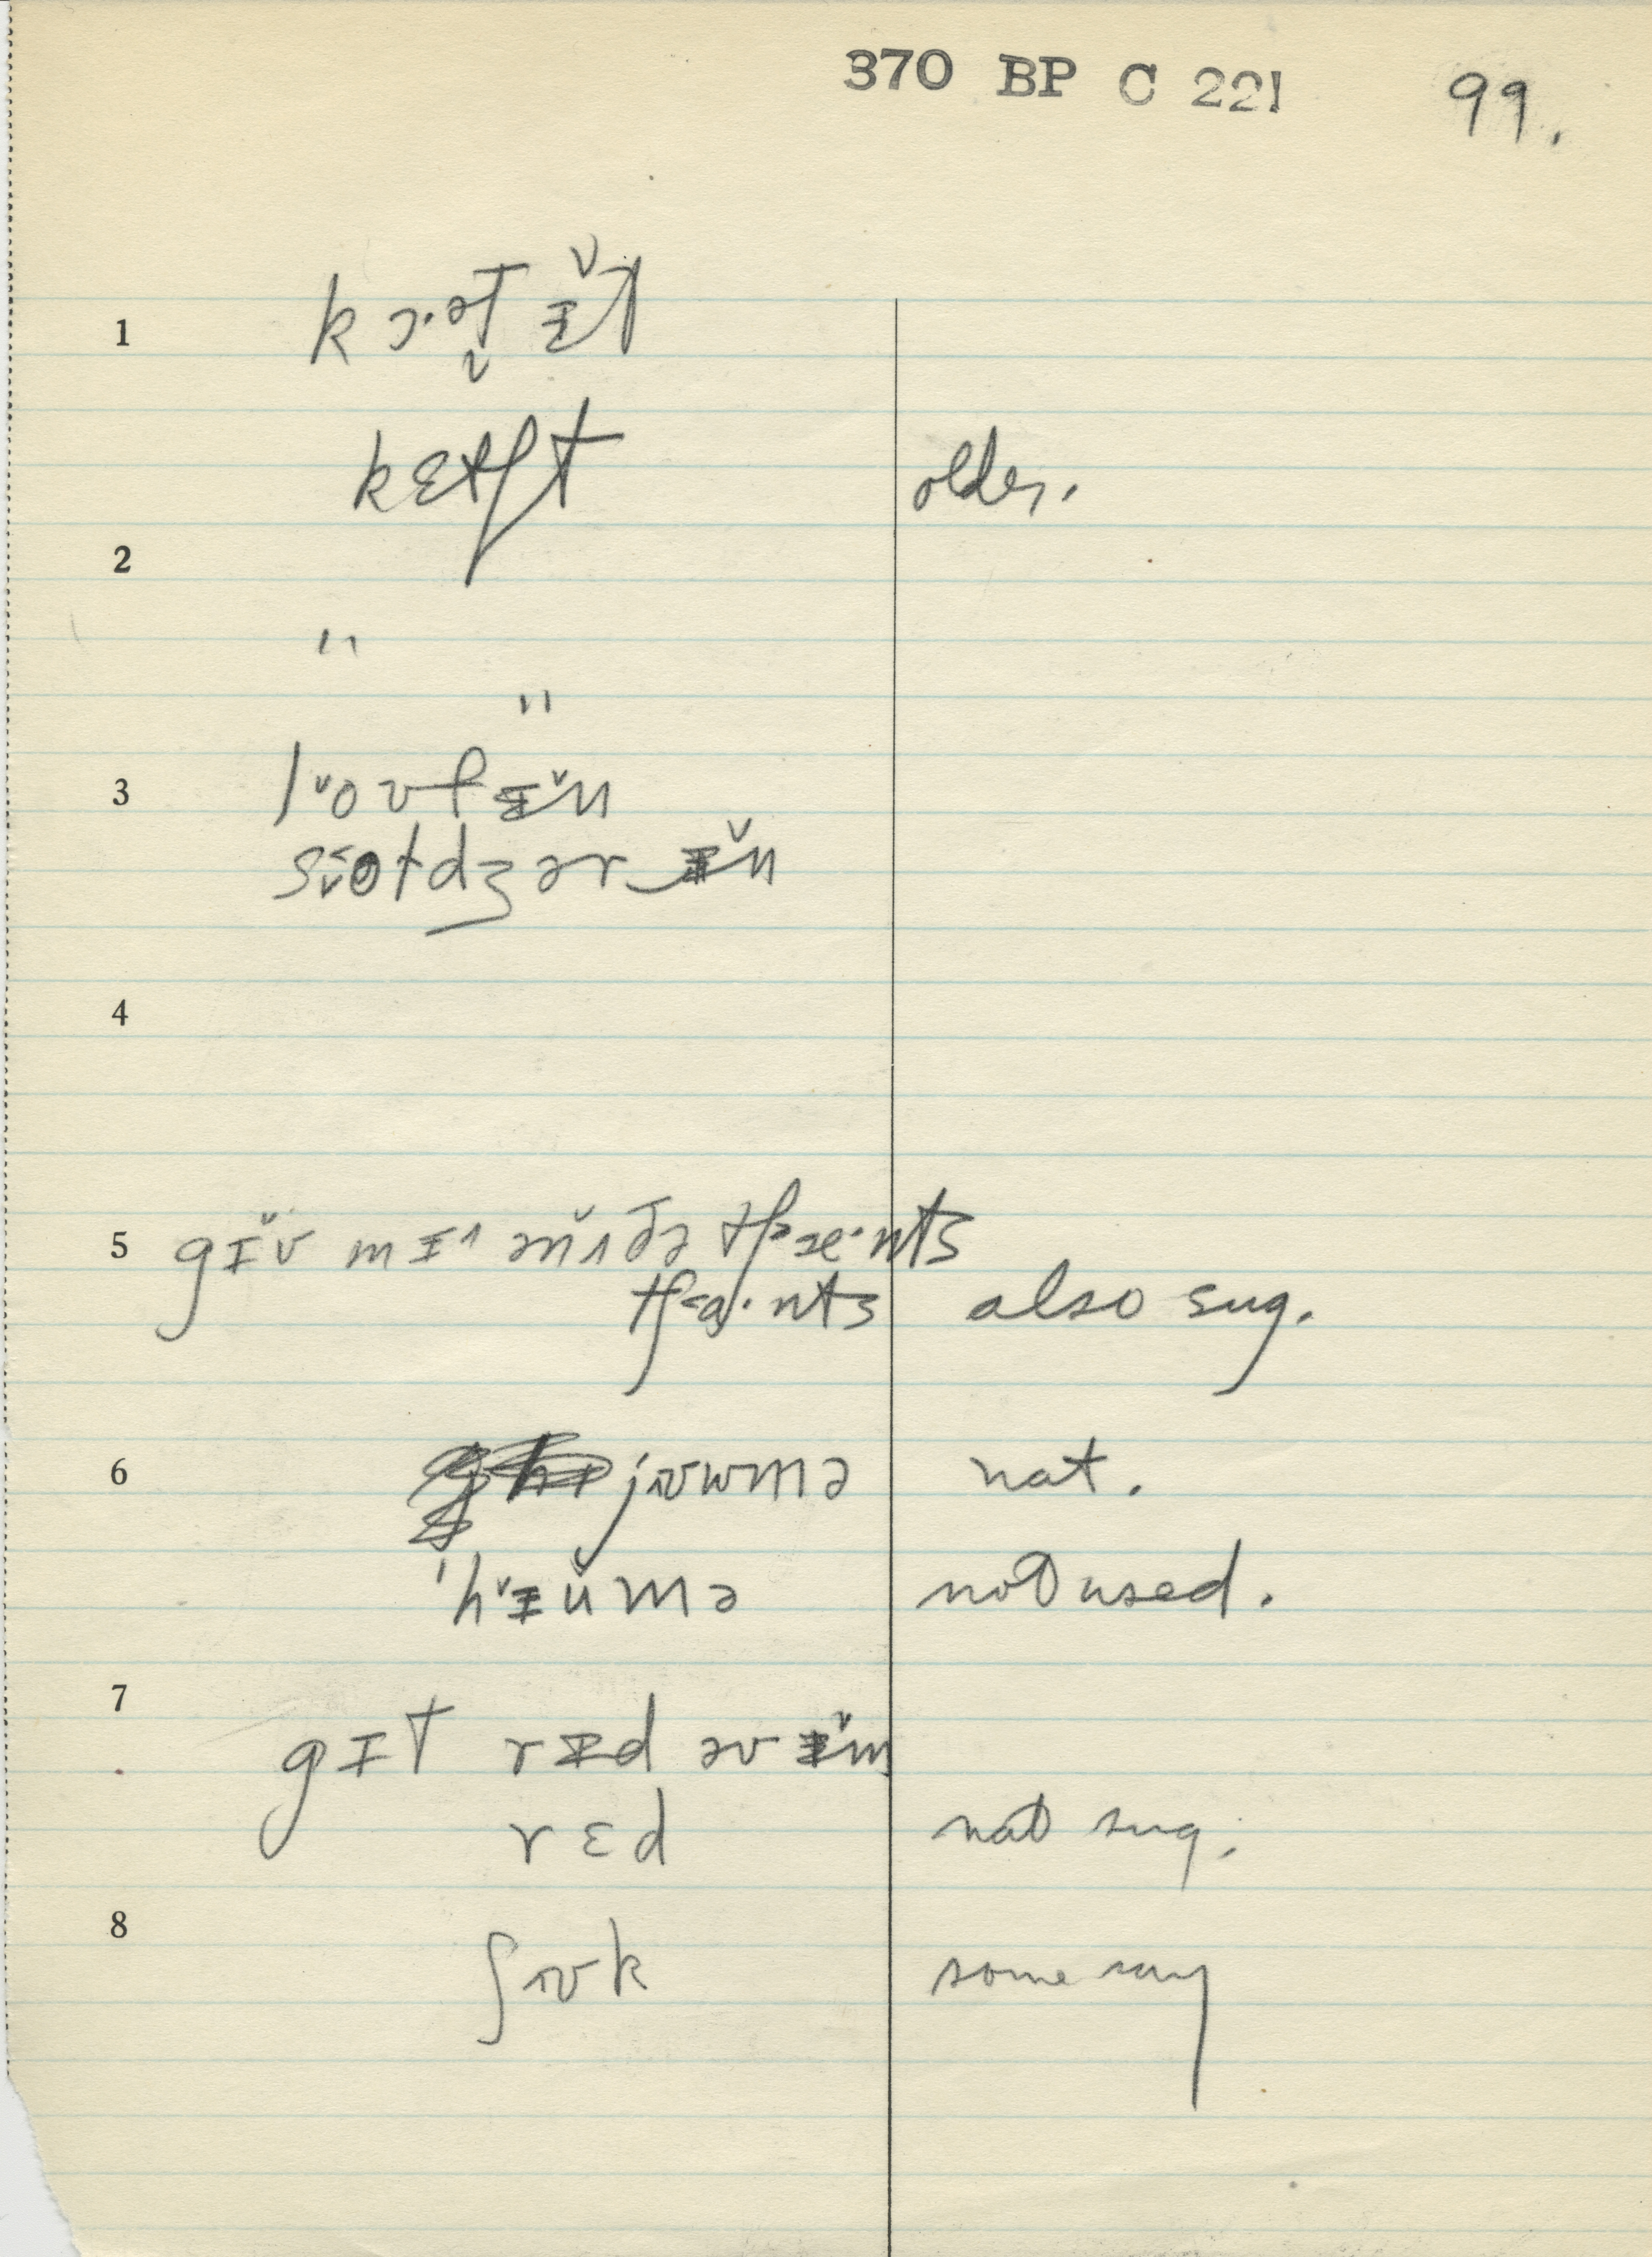 370 BP C 221 99.
1 kɔ·ət̬ ɪ̆t
kɛtʃt older.
2
" "
3 l˅oʊfɪ̆n
dʒərɪ̆n
4
5 gɪ̆v mɪ˄ ən˄ðə tʃ˃æ·nts
tʃ˂ɑ·nts also sug.
6 jɪʊwmə nat.
'h˅ɪŭmə not used.
7
gɪt rɪd əv ɪ̆m
rɛd nat sug.
8
ʃʊk some say